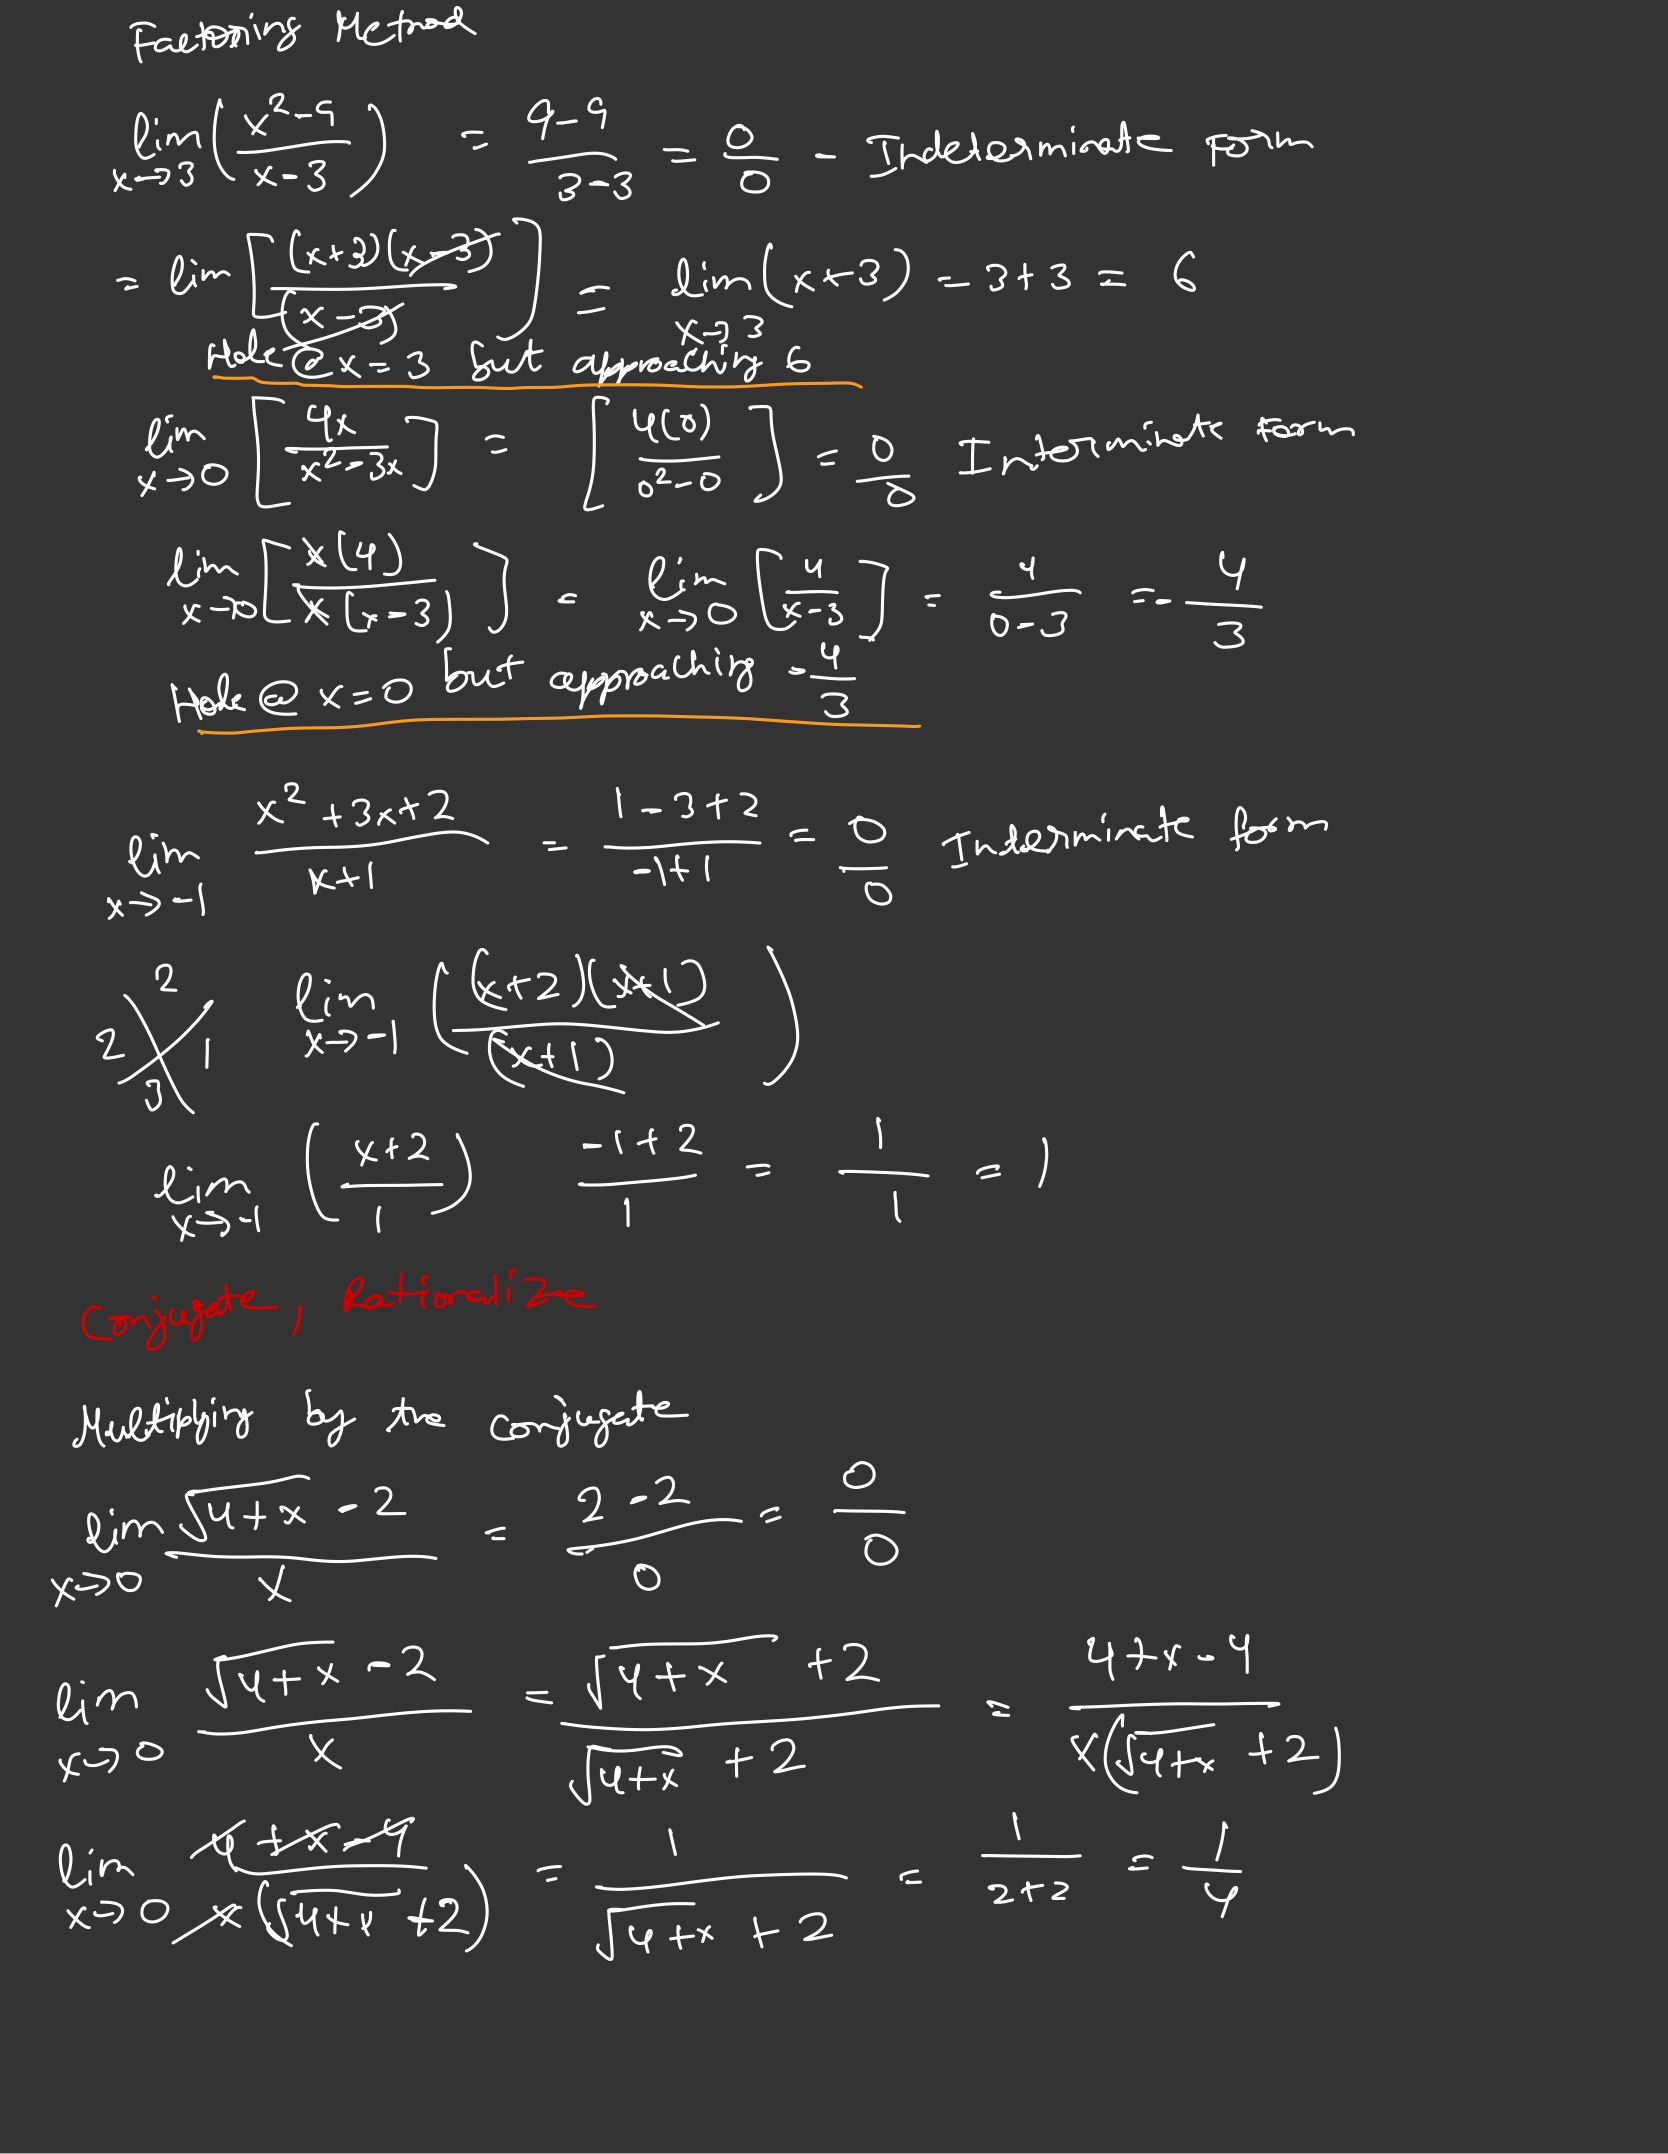 Factoring Method
lim x→3 (x²-9 / x-3) = 9-9 / 3-3 = 0/0 - Indeterminate Form
= lim [(x+3)(x-3) / (x-3)] = lim x→3 (x+3) = 3+3 = 6
Hole @ x=3 but approaching 6
lim x→0 [4x / x²-3x] = [4(0) / 0²-0] = 0/0 Interminate Form
lim x→0 [x(4) / x(x-3)] = lim x→0 [4 / x-3] = 4 / 0-3 = -4/3
Hole @ x=0 but approaching -4/3
lim x→-1 x²+3x+2 / x+1 = 1-3+2 / -1+1 = 0/0 Inderminate form
2 2 1 3 lim x→-1 ((x+2)(x+1) / (x+1))
lim x→-1 (x+2 / 1) -1+2 / 1 = 1/1 = 1
Conjugate, Rationalize
Multiplying by the conjugate
lim x→0 √4+x - 2 / x = 2-2 / 0 = 0/0
lim x→0 √4+x - 2 / x = √4+x + 2 / √4+x + 2 = 4+x-4 / x(√4+x + 2)
lim x→0 4+x-4 / x(√4+x + 2) = 1 / √4+x + 2 = 1 / 2+2 = 1/4